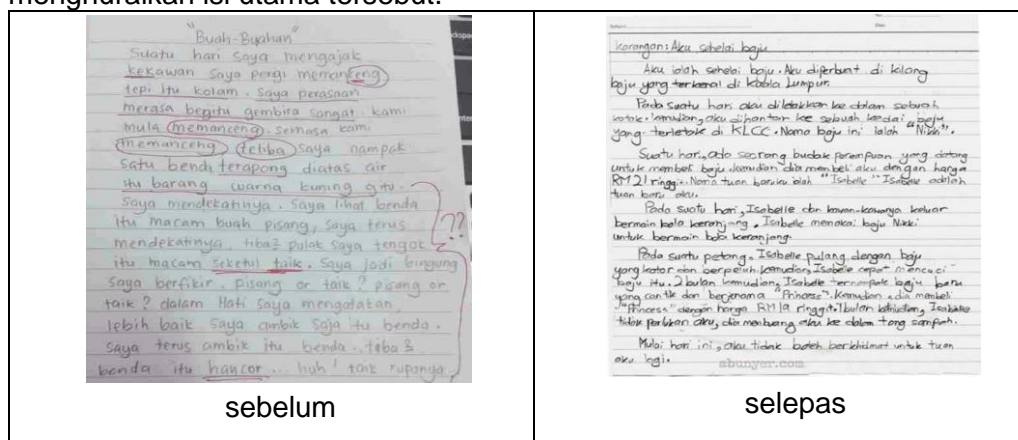 menghuraikan isi utama tersebut.
"Buah-Buahan"
Suatu hari saya mengajak
kekawan saya pergi memanceng
tepi itu kolam. Saya perasaan
merasa begitu gembira sangat. kami
mula memanceng. semasa kami
memanceng tetiba saya nampak
satu benda terapong diatas air
itu barang warna kuning gitu.
Saya mendekatinya. Saya lihat benda
itu macam buah pisang, saya terus
mendekatinya. tiba2 pulak saya tengok
itu macam seketul taik. Saya jadi bingung
Saya berfikir. pisang or taik? pisang or
taik? dalam Hati saya mengatakan
lebih baik saya ambik saja itu benda.
Saya terus ambik itu benda. tiba2
benda itu hancor... huh! taik rupanya
??
sebelum
Karangan: Aku sehelai baju
Aku ialah sehelai baju. Aku diperbuat di kilang
baju yang terkenal di Kuala Lumpur.
Pada suatu hari aku diletakkan ke dalam sebuah
kotak. kemudian, aku dihantar ke sebuah kedai baju
yang terletak di KLCC. Nama baju ini ialah "Nikki".
Suatu hari, ada seorang budak perempuan yang datang
untuk membeli baju. kemudian dia membeli aku dengan harga
RM21 ringgit. Nama tuan baruku ialah "Isabelle" Isabelle adalah
tuan baru aku.
Pada suatu hari, Isabelle dan kawan-kawanya keluar
bermain bola keranjang. Isabelle memakai baju Nikki
untuk bermain bola keranjang.
Pada suatu petang, Isabelle pulang dengan baju
yang kotor dan berpeluh. kemudian, Isabelle cepat mencuci
baju itu. 2 bulan kemudian, Isabelle ternampak baju baru
yang cantik dan berjenama "Princess". Kemudian, dia membeli
"Princess" dengan harga RM19 ringgit. 1 bulan kemudian, Isabelle
tidak perlukan aku, dia membuang aku ke dalam tong sampah.
Mulai hari ini, aku tidak boleh berkhidmat untuk tuan
aku lagi.
abunyer.com
selepas